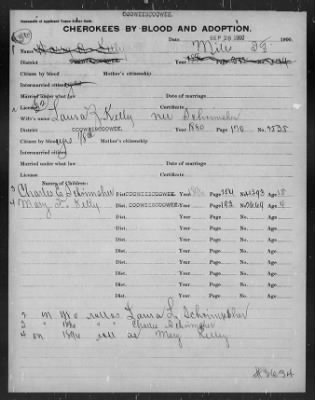 COOWEESCOOWEE.
CHEROKEES BY BLOOD AND ADOPTION.
Date SEP 28 1900 1900.
Name
District Year Page No.
Citizen by blood Mother's citizenship
Intermarried citizen
Married under what law Date of marriage
License Certificate
Wife's name Laura L Kelly nee Schrimsher
District COOWEESCOOWEE. Year 1880 Page No.
Citizen by blood yes Mother's citizenship
Intermarried citizen
Married under what law Date of marriage
License Certificate
Names of Children:
3 Charles E Schrimsher Dist. COOWEESCOOWEE. Year 1896 Page No. Age 18
4 Mary F. Kelly Dist. COOWEESCOOWEE. Year Page 193 No. Age 4
Dist. Year Page No. Age
Dist. Year Page No. Age
Dist. Year Page No. Age
Dist. Year Page No. Age
Dist. Year Page No. Age
Dist. Year Page No. Age
Dist. Year Page No. Age
2 on roll as Laura L.
3 " 1896 " " Charlie Schrimsher
4 on 1896 roll as Mary Kelly
#3634